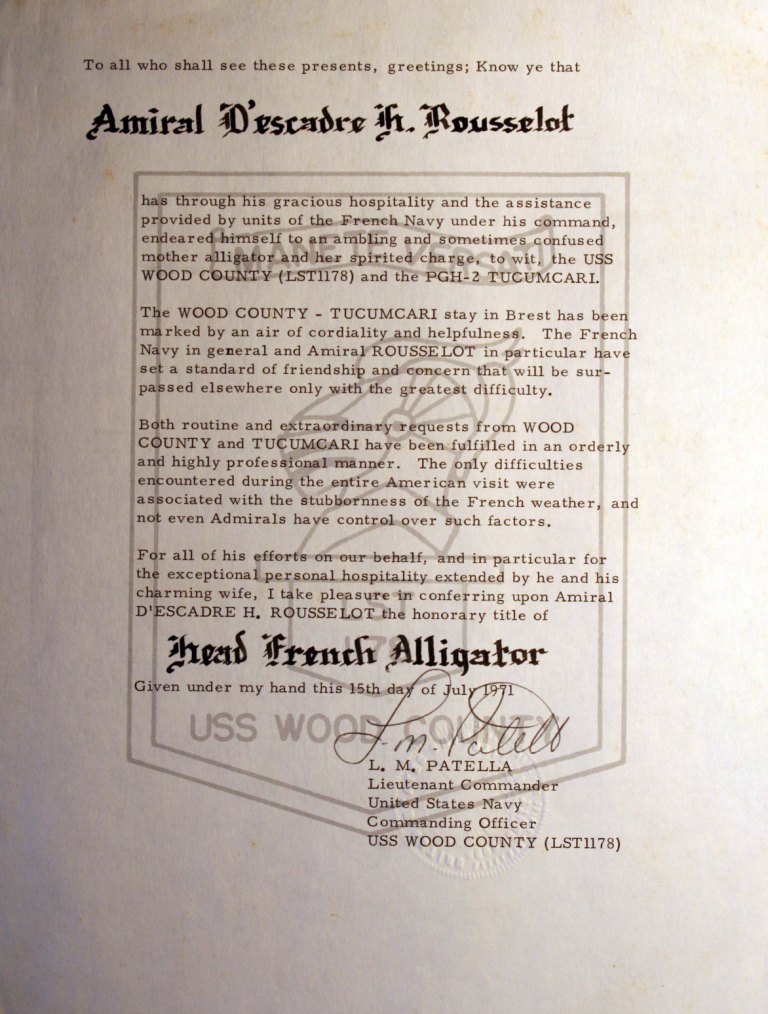 To all who shall see these presents, greetings; Know ye that
Amiral D'escadre H. Rousselot
has through his gracious hospitality and the assistance
provided by units of the French Navy under his command,
endeared himself to an ambling and sometimes confused
mother alligator and her spirited charge, to wit, the USS
WOOD COUNTY (LST1178) and the PGH-2 TUCUMCARI.
The WOOD COUNTY - TUCUMCARI stay in Brest has been
marked by an air of cordiality and helpfulness. The French
Navy in general and Amiral ROUSSELOT in particular have
set a standard of friendship and concern that will be sur-
passed elsewhere only with the greatest difficulty.
Both routine and extraordinary requests from WOOD
COUNTY and TUCUMCARI have been fulfilled in an orderly
and highly professional manner. The only difficulties
encountered during the entire American visit were
associated with the stubbornness of the French weather, and
not even Admirals have control over such factors.
For all of his efforts on our behalf, and in particular for
the exceptional personal hospitality extended by he and his
charming wife, I take pleasure in conferring upon Amiral
D'ESCADRE H. ROUSSELOT the honorary title of
Head French Alligator
Given under my hand this 15th day of July 1971
USS WOOD COUNTY
L. M. Patella
L. M. PATELLA
Lieutenant Commander
United States Navy
Commanding Officer
USS WOOD COUNTY (LST1178)